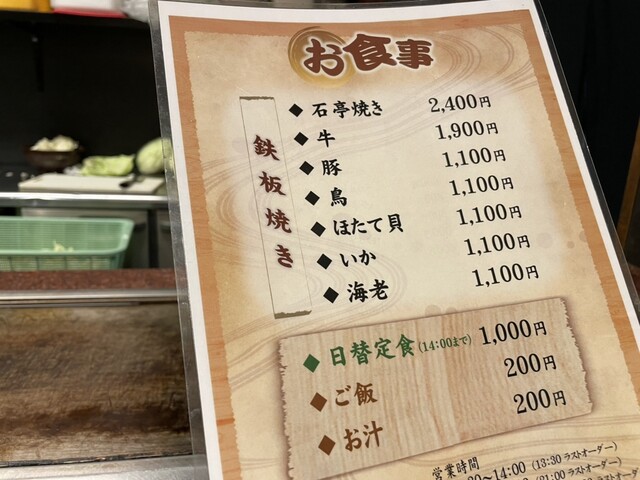 お食事
鉄板焼き
◆ 石亭焼き 2,400円
◆ 牛 1,900円
◆ 豚 1,100円
◆ 鳥 1,100円
◆ ほたて貝 1,100円
◆ いか 1,100円
◆ 海老 1,100円
◆ 日替定食(14:00まで) 1,000円
◆ ご飯 200円
◆ お汁 200円
営業時間
〜14:00 (13:30 ラストオーダー)
ラストオーダー)